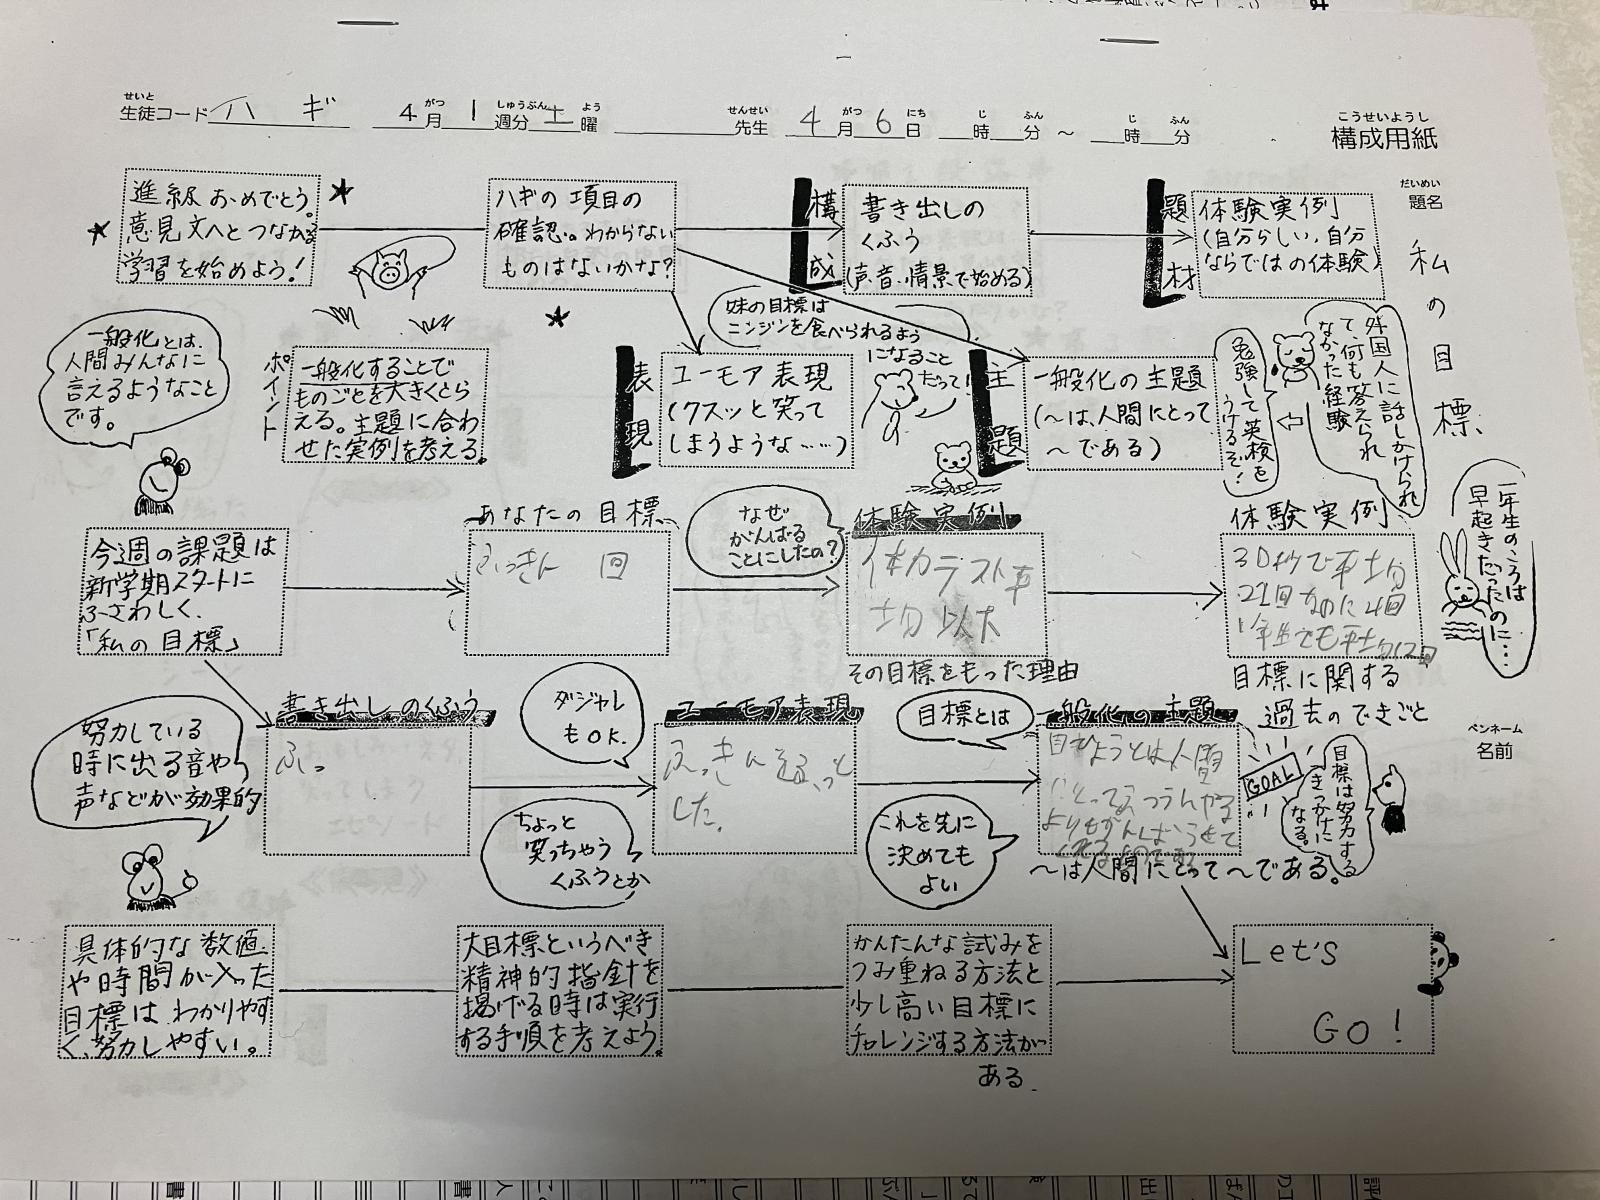 せいと がつ しゅうぶん よう せんせい がつ にち じ ふん じ ふん
生徒コード ハギ 4月 1週分 土曜 先生 4月6日 時 分 ～ 時 分
こうせいようし
構成用紙
だいめい
題名
私の目標
ペンネーム
名前
進級おめでとう。
意見文へとつながる
学習を始めよう!
ハギの項目の
確認。わからない
ものはないかな?
構成
書き出しの
くふう
(声、音、情景で始める)
題材
体験実例
(自分らしい、自分
ならではの体験)
一般化とは、
人間みんなに
言えるようなこと
です。
ポイント
一般化することで
ものごとを大きくとら
える。主題に合わ
せた実例を考える。
妹の目標は
ニンジンを食べられるよう
になること
だって!
表現
ユーモア表現
(クスッと笑って
しまうような……)
主題
一般化の主題
(～は、人間にとって
～である)
外国人に話しかけられ
て、何も答えられ
なかった経験
勉強して英検を
うけるぞ!
一年生のころは
早起きだったのに…
今週の課題は
新学期スタートに
ふさわしく、
「私の目標」
あなたの目標
ふっきん 回
なぜ
がんばる
ことにしたの?
体験実例
体力テスト平
均以下
その目標をもった理由
体験実例
30秒で平均
21回なのに4回
1年生でも平均12回
目標に関する
過去のできごと
努力している
時に出る音や
声などが効果的
書き出しのくふう
ふっ
ダジャレ
もOK.
ちょっと
笑っちゃう
くふうとか
ユーモア表現
ふっきん
した。
目標とは
これを先に
決めても
よい
一般化の主題
目ひょうとは人間
にとってふつうにやる
よりもがんばらせて
～は人間にとって～である。
GOAL
目標は努力する
きっかけに
なる。
具体的な数値
や時間が入った
目標は、わかりやす
く、努力しやすい。
大目標というべき
精神的指針を
掲げる時は実行
する手順を考えよう。
かんたんな試みを
つみ重ねる方法と
少し高い目標に
チャレンジする方法が
ある.
Let's
Go!